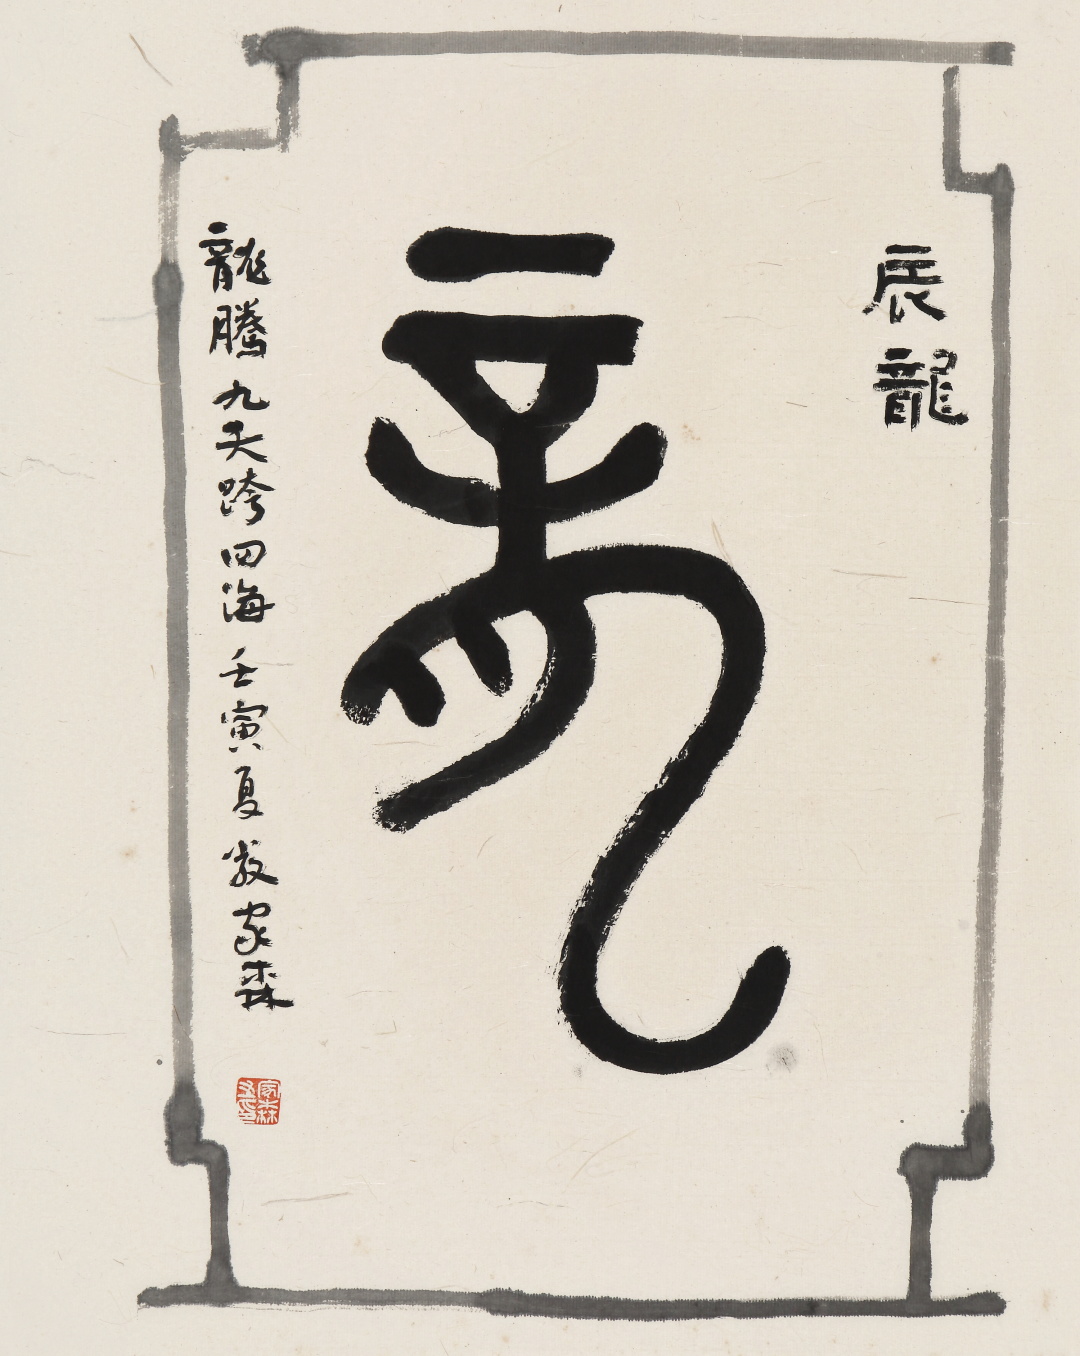 辰龍
龍
龍騰九天跨四海 壬寅夏 敖家森
家森